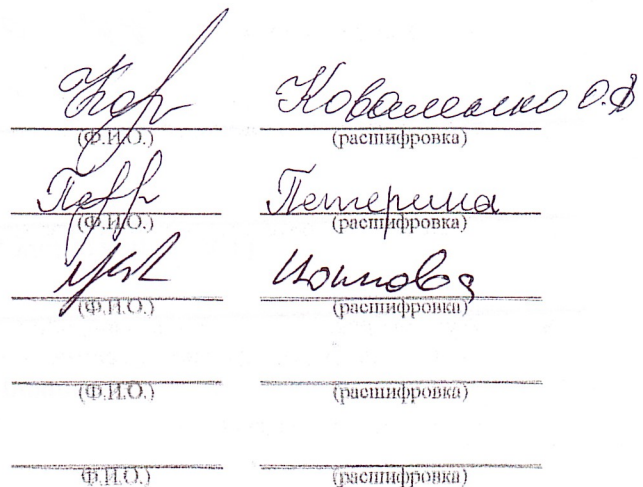 Коваленко О.Ф
(Ф.И.О.) (расшифровка)
Петерина
(Ф.И.О.) (расшифровка)
(Ф.И.О.) (расшифровка)
(Ф.И.О.) (расшифровка)
Ф.И.О.) (расшифровка)